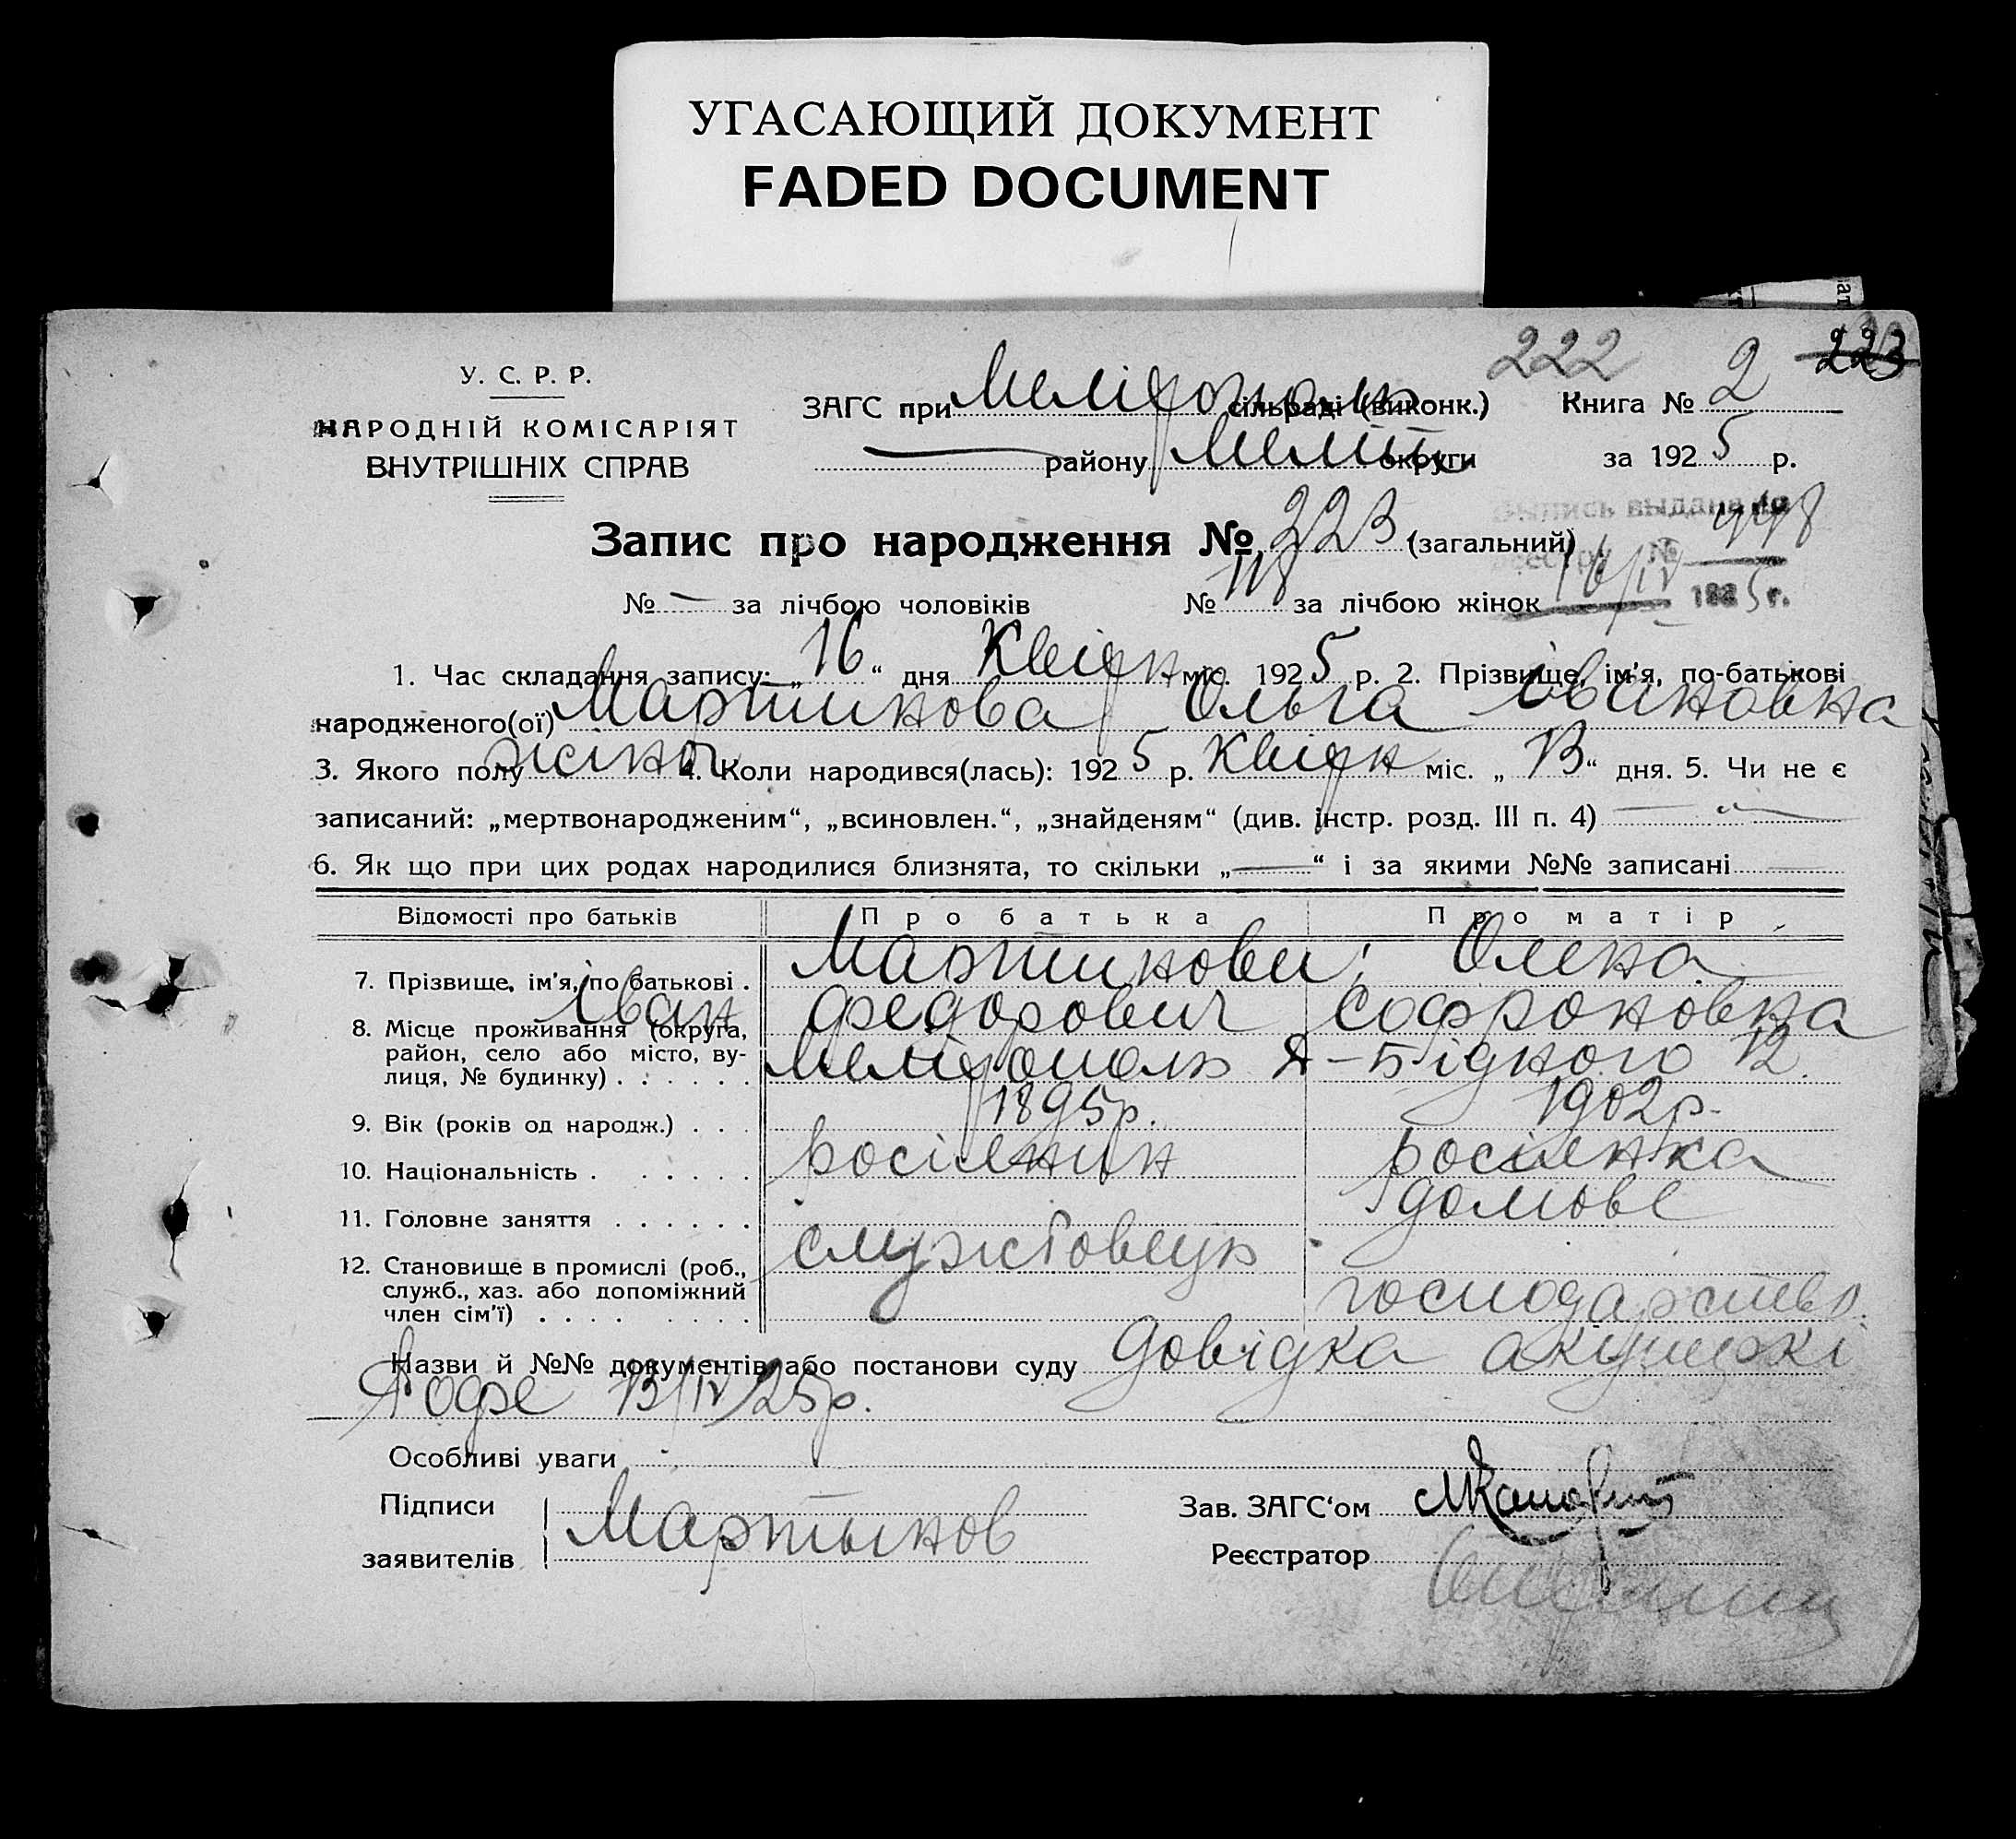 УГАСАЮЩИЙ ДОКУМЕНТ
FADED DOCUMENT
222 223
У. С. Р. Р.
НАРОДНІЙ КОМІСАРІЯТ
ВНУТРІШНІХ СПРАВ
ЗАГС при Мелітополь сільраді (виконк.) Книга № 2
— району Меліт. округи за 1925 р.
Запис про народження № 223 (загальний)
Выпись выдана за
реестру № 998
16/IV 1925 г.
№ — за лічбою чоловіків № 118 за лічбою жінок
1. Час складання запису: „16“ дня Квітн міс. 1925 р. 2. Прізвище, ім'я, по-батькові
народженого(ої) Мартинова Ольга Івановна
3. Якого полу жіноч. 4. Коли народився(лась): 1925 р. Квітн міс. „13“ дня. 5. Чи не є
записаний: „мертвонародженим“, „всиновлен.“, „знайденям“ (див. інстр. розд. III п. 4) —
6. Як що при цих родах народилися близнята, то скільки „—“ і за якими №№ записані
Відомості про батьків Про батька Про матір
7. Прізвище, ім'я, по батькові . Мартинови: Олена
Іван Федорович Софроновна
8. Місце проживання (округа, район, село або місто, вулиця, № будинку) . . . . . . Мелітополь Д-Бідного 12.
9. Вік (років од народж.) . . . 1895р. 1902р.
10. Національність . . . . . . росіянин росіянка
11. Головне заняття . . . . . . домове
службовець
12. Становище в промислі (роб., служб., хаз. або допоміжний член сім'ї) . . . . . . . . господарство.
Назви й №№ документів або постанови суду довідка акушеркі
13/IV 25р.
Особливі уваги
Підписи
заявителів Мартынов
Зав. ЗАГС'ом
Реєстратор